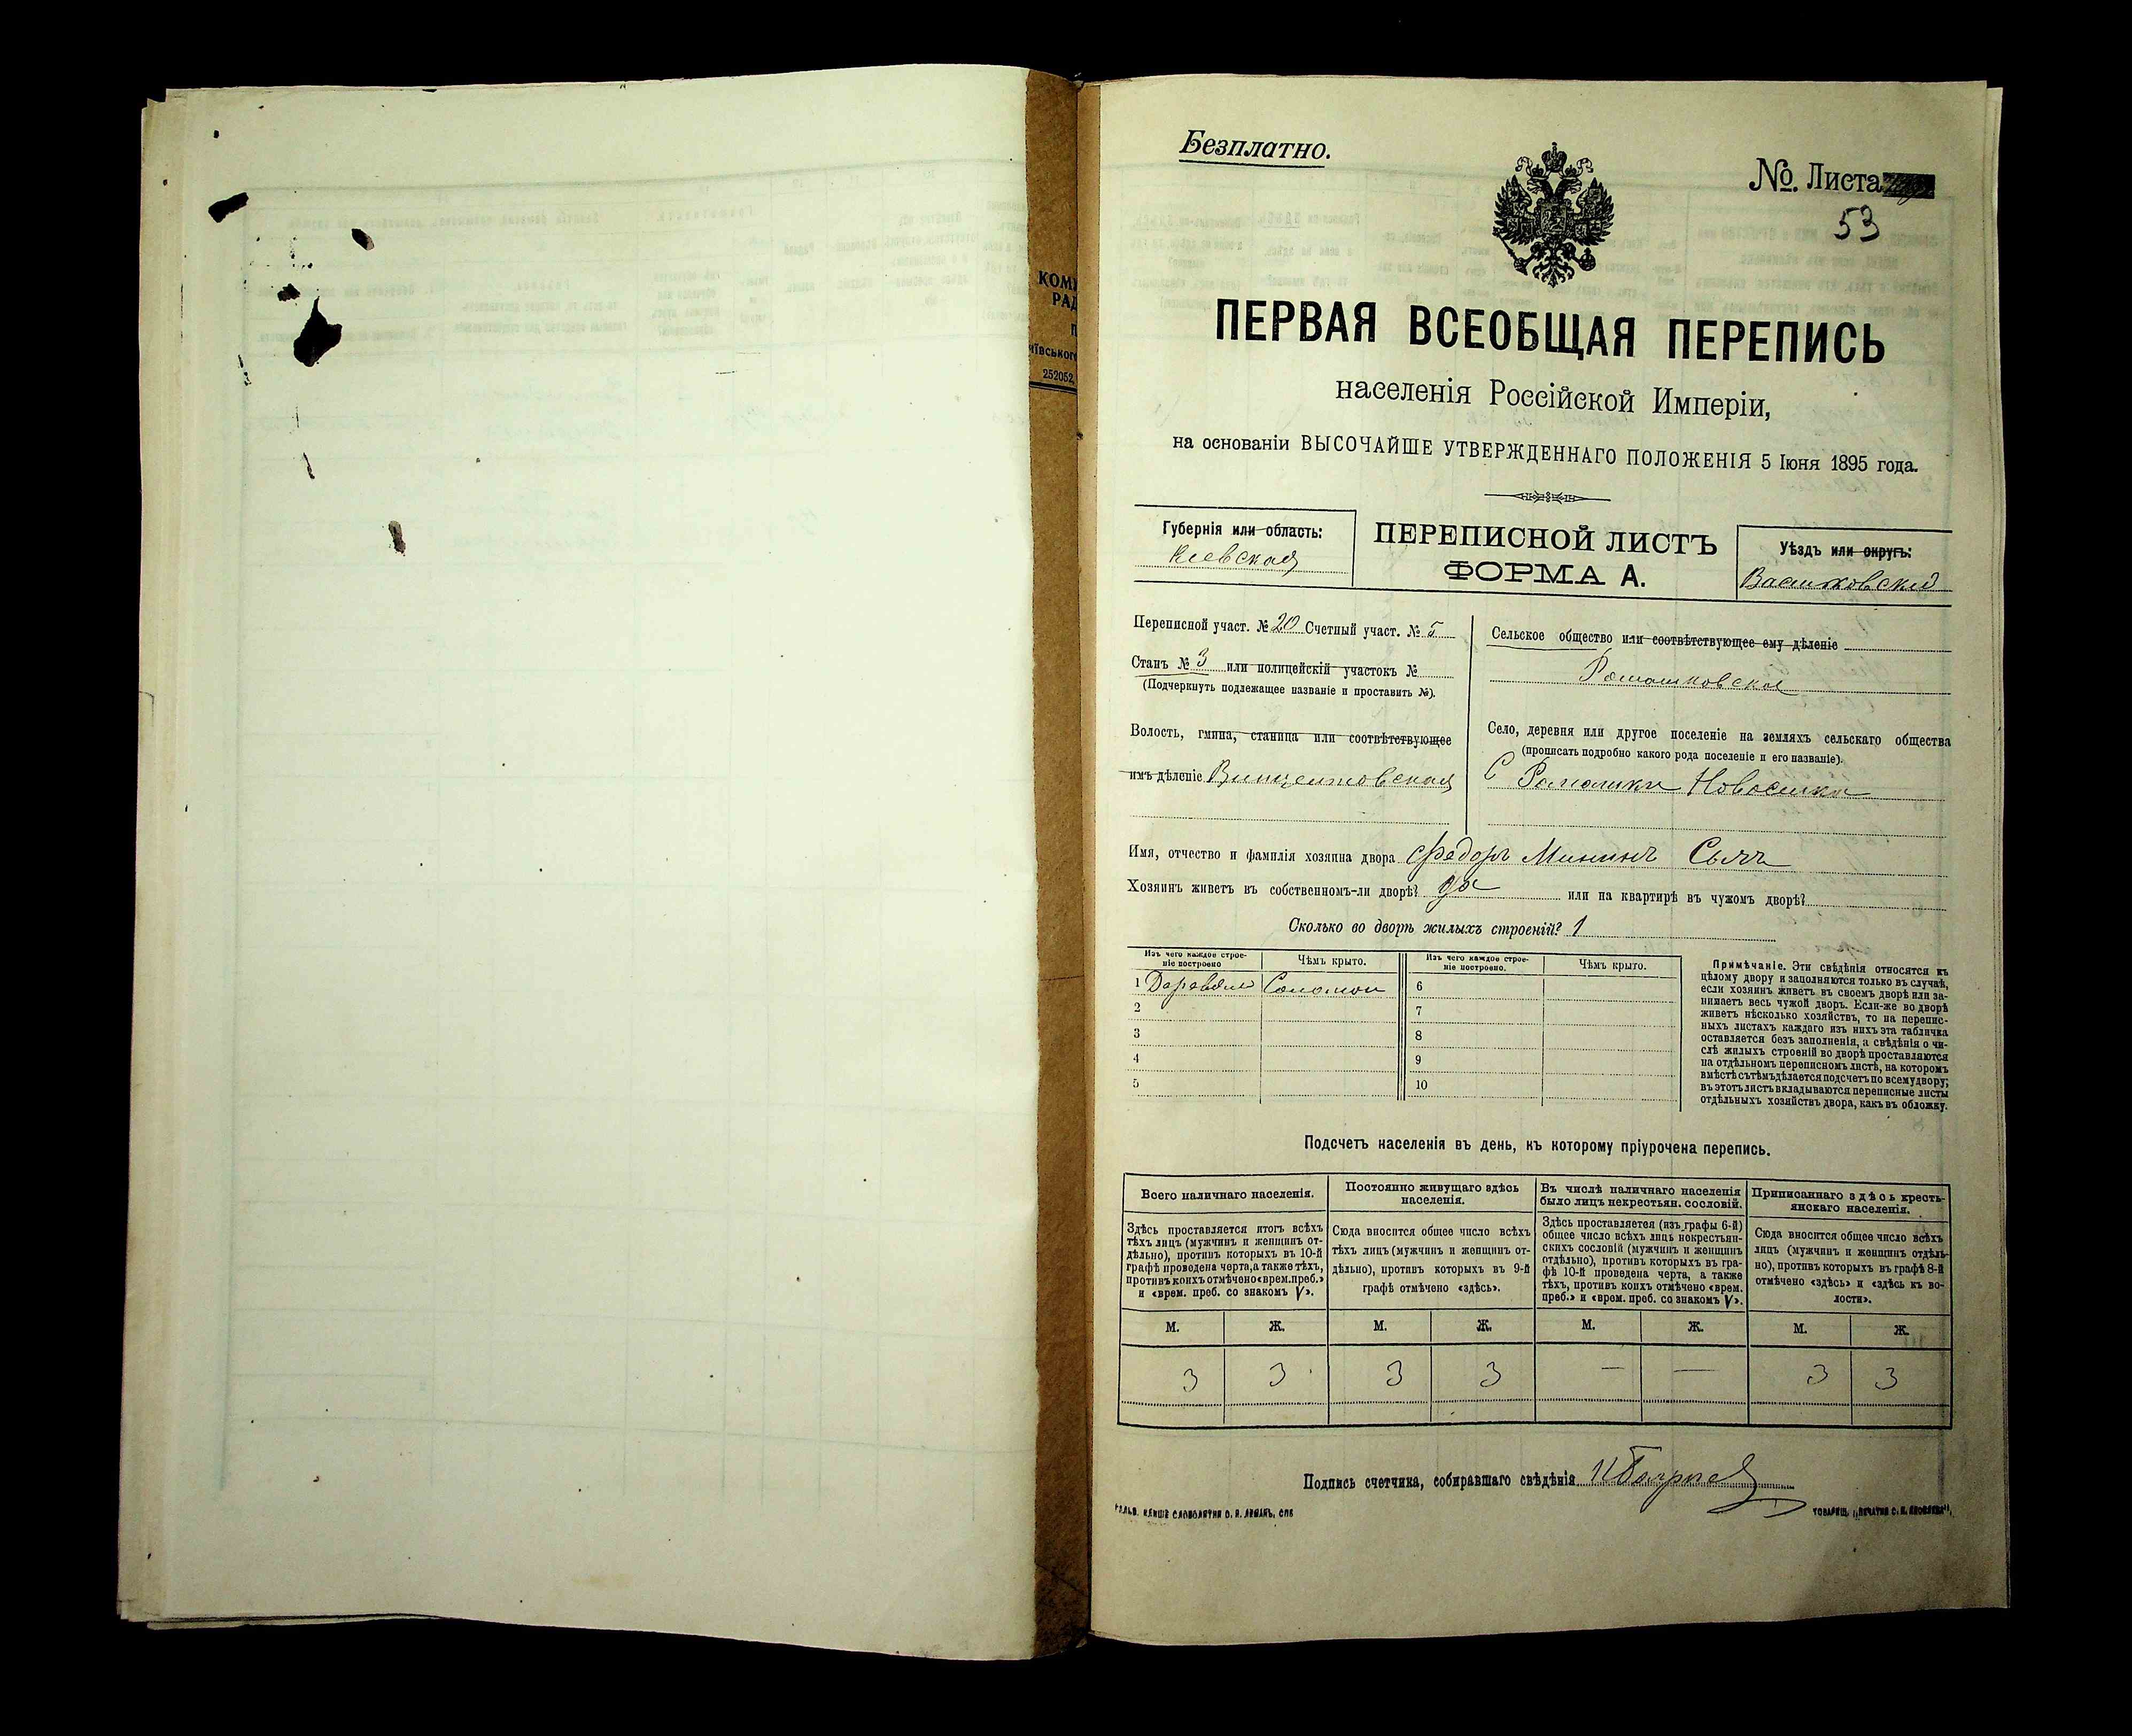 КОМ
РАД
П
иївського
252052,
Безплатно.
№. Листа
53
ПЕРВАЯ ВСЕОБЩАЯ ПЕРЕПИСЬ
населенія Россійской Имперіи,
на основаніи ВЫСОЧАЙШЕ УТВЕРЖДЕННАГО ПОЛОЖЕНІЯ 5 Іюня 1895 года.
Губернія или область:
Киевская
ПЕРЕПИСНОЙ ЛИСТЪ
ФОРМА А.
Уѣздъ или округъ:
Васильковский
Переписной участ. № 20 Счетный участ. № 5
Станъ № 3 или полицейскій участокъ №
(Подчеркнуть подлежащее названіе и проставить №).
Волость, гмина, станица или соотвѣтствующее
имъ дѣленіе Винцентовская
Сельское общество или соотвѣтствующее ему дѣленіе
Ромашковское
Село, деревня или другое поселеніе на земляхъ сельскаго общества
(прописать подробно какого рода поселеніе и его названіе).
С Ромашки
Имя, отчество и фамилія хозяина двора Федоръ Мининъ
Хозяинъ живетъ въ собственномъ-ли дворѣ? да или на квартирѣ въ чужомъ дворѣ?
Сколько во дворѣ жилыхъ строеній? 1
Изъ чего каждое строе-
ніе построено
Чѣмъ крыто.
Изъ чего каждое строе-
ніе построено.
Чѣмъ крыто.
1 Соломои 6
2 7
3 8
4 9
5 10
Примѣчаніе. Эти свѣдѣнія относятся къ
цѣлому двору и заполняются только въ случаѣ,
если хозяинъ живетъ въ своемъ дворѣ или за-
нимаетъ весь чужой дворъ. Если-же во дворѣ
живетъ нѣсколько хозяйствъ, то на перепис-
ныхъ листахъ каждаго изъ нихъ эта табличка
оставляется безъ заполненія, а свѣдѣнія о чи-
слѣ жилыхъ строеній во дворѣ проставляются
на отдѣльномъ переписномъ листѣ, на которомъ
вмѣстѣ съ тѣмъ дѣлается подсчетъ по всему двору;
въ этотъ листъ вкладываются переписные листы
отдѣльныхъ хозяйствъ двора, какъ въ обложку.
Подсчетъ населенія въ день, къ которому пріурочена перепись.
Всего наличнаго населенія.
Здѣсь проставляется итогъ всѣхъ
тѣхъ лицъ (мужчинъ и женщинъ от-
дѣльно), противъ которыхъ въ 10-й
графѣ проведена черта, а также тѣхъ,
противъ коихъ отмѣчено «врем. преб.»
и «врем. преб. со знакомъ V».
Постоянно живущаго здѣсь
населенія.
Сюда вносится общее число всѣхъ
тѣхъ лицъ (мужчинъ и женщинъ от-
дѣльно), противъ которыхъ въ 9-й
графѣ отмѣчено «здѣсь».
Въ числѣ наличнаго населенія
было лицъ некрестьян. сословій.
Здѣсь проставляется (изъ графы 6-й)
общее число всѣхъ лицъ некрестьян-
скихъ сословій (мужчинъ и женщинъ
отдѣльно), противъ которыхъ въ гра-
фѣ 10-й проведена черта, а также
тѣхъ, противъ коихъ отмѣчено «врем.
преб.» и «врем. преб. со знакомъ V».
Приписаннаго здѣсь кресть-
янскаго населенія.
Сюда вносится общее число всѣхъ
лицъ (мужчинъ и женщинъ отдѣль-
но), противъ которыхъ въ графѣ 8-й
отмѣчено «здѣсь» и «здѣсь къ во-
лости».
М. Ж. М. Ж. М. Ж. М. Ж.
3 3 3 3 — — 3 3
Подпись счетчика, собиравшаго свѣдѣнія
СЛОВОЛИТНЯ О. И. ЛЕМАНЪ, СПБ
ТОВАРИЩ. „ПЕЧАТНЯ С. П. ЯКОВЛЕВА“,